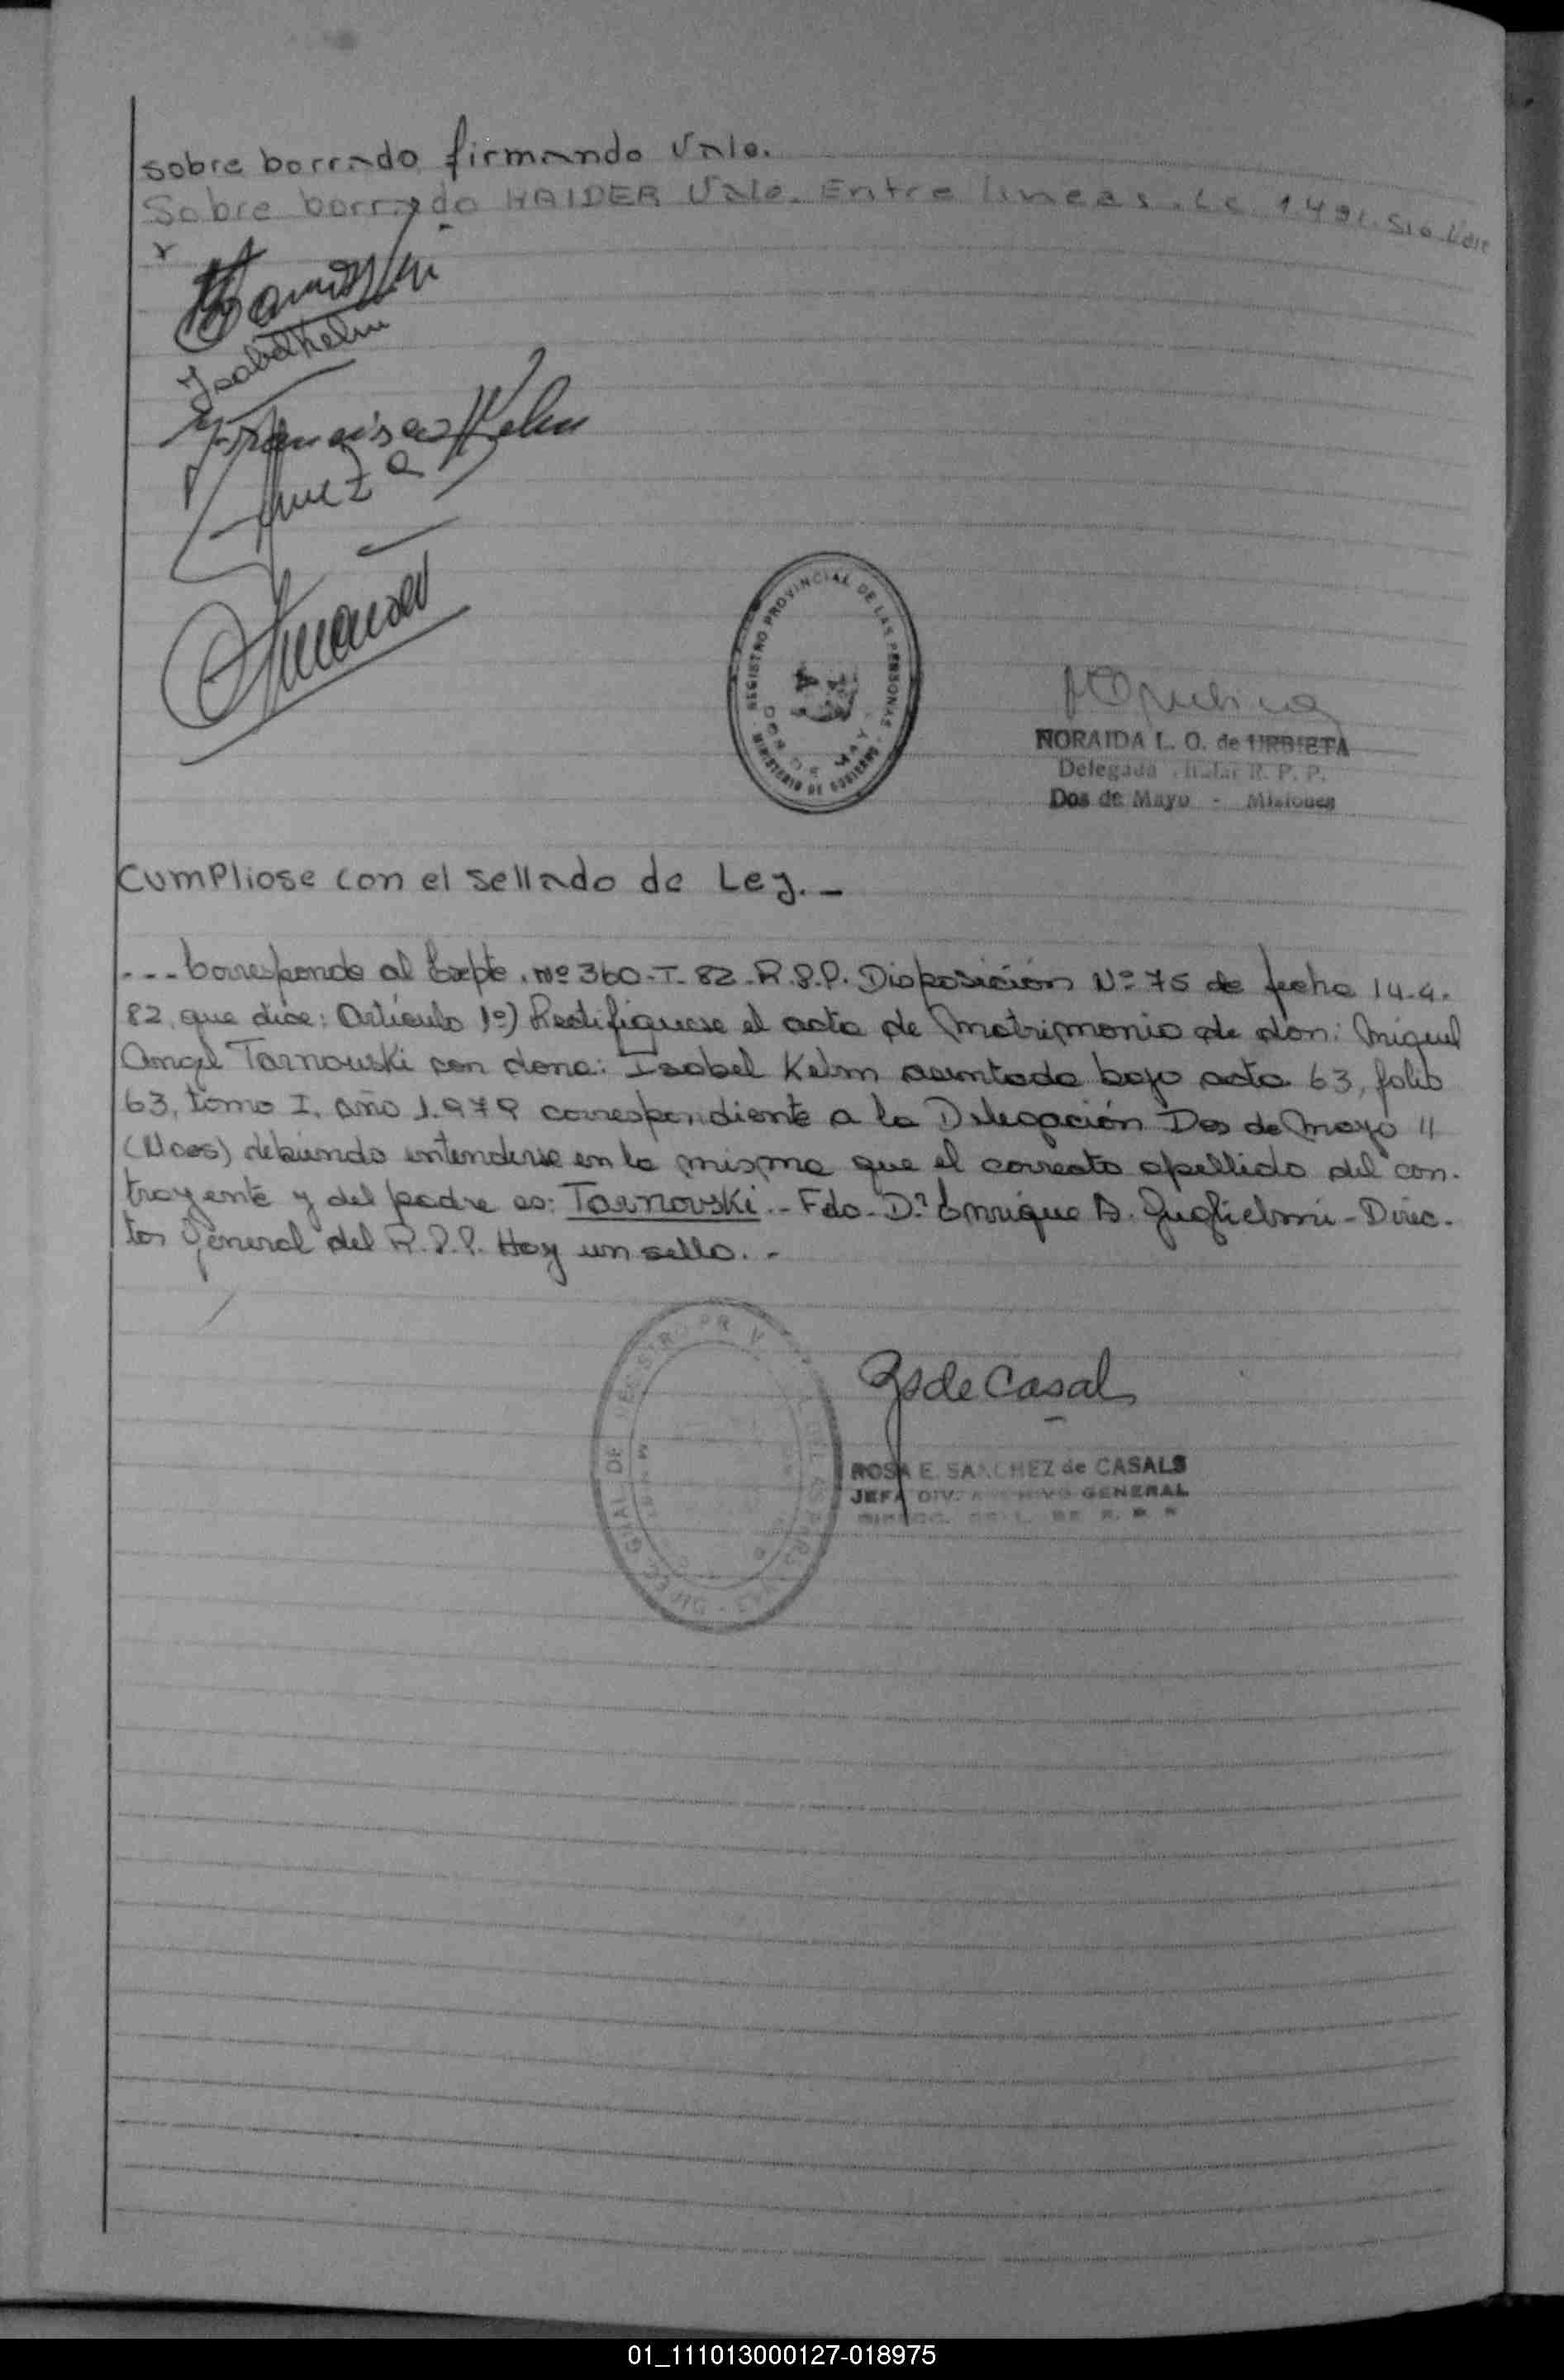 sobre borrado firmando Vale.
Sobre borrado HAIDER Vale. Entre lineas. Vale
Isabel Kelm
Francisco Kelm
REGISTRO PROVINCIAL DE LAS PERSONAS
MINISTERIO DE GOBIERNO
NORAIDA L. O. de URBIETA
Delegada Titular R. P. P.
Dos de Mayo - Misiones
Cumpliose con el sellado de Ley. -
--- Corresponde al Expte. Nº 360-T-82-R.P.P. Disposición Nº 75 de fecha 14-4-
82, que dice: Artículo 1º) Rectifiquese el acta de Matrimonio de don: Miguel
Angel Tarnowski con dona: Isabel Kelm asentada bajo acta 63, folio
63, tomo I, año 1.979 correspondiente a la Delegación Dos de Mayo "
debiendo entenderse en la misma que el correcto apellido del con-
trayente y del padre es: Tarnovski.- Fdo- Dr Enrique A. Guglielmi - Direc-
tor General del R.P.P. Hay un sello. -
Rs de Casal
ROSA E. SANCHEZ de CASALS
JEFA DIV. ARCHIVO GENERAL
01_111013000127-018975